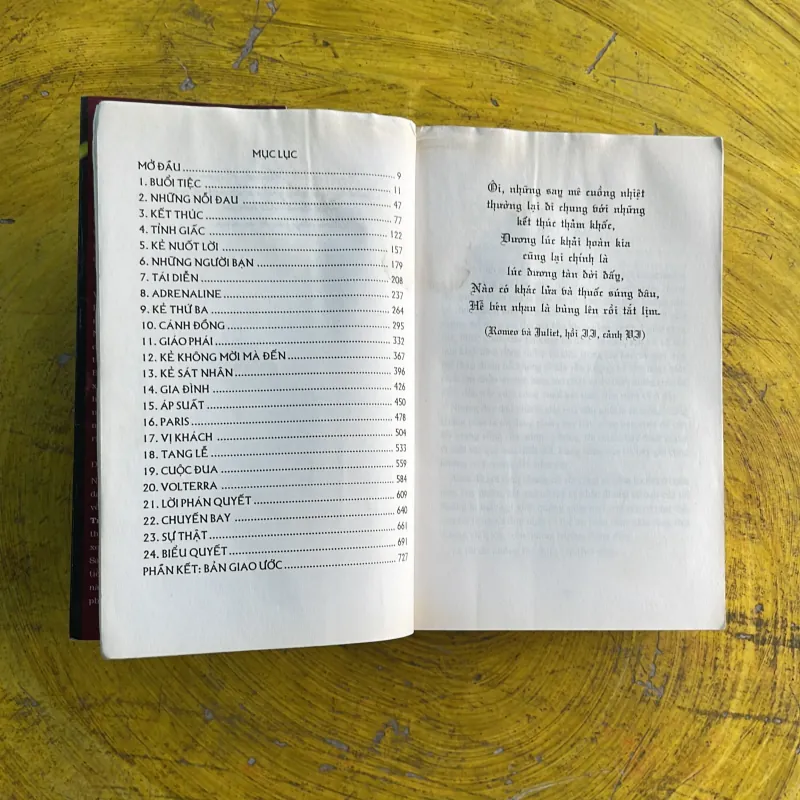 MỤC LỤC
MỞ ĐẦU 9
1. BUỔI TIỆC 11
2. NHỮNG NỖI ĐAU 47
3. KẾT THÚC 77
4. TỈNH GIẤC 122
5. KẺ NUỐT LỜI 157
6. NHỮNG NGƯỜI BẠN 179
7. TÁI DIỄN 208
8. ADRENALINE 237
9. KẺ THỨ BA 264
10. CÁNH ĐỒNG 295
11. GIÁO PHÁI 332
12. KẺ KHÔNG MỜI MÀ ĐẾN 367
13. KẺ SÁT NHÂN 396
14. GIA ĐÌNH 426
15. ÁP SUẤT 450
16. PARIS 478
17. VỊ KHÁCH 504
18. TANG LỄ 533
19. CUỘC ĐUA 559
20. VOLTERRA 584
21. LỜI PHÁN QUYẾT 609
22. CHUYẾN BAY 640
23. SỰ THẬT 661
24. BIỂU QUYẾT 691
PHẦN KẾT: BẢN GIAO ƯỚC 727
Ôi, những say mê cuồng nhiệt
thường lại đi chung với những
kết thúc thảm khốc,
Đương lúc khải hoàn kia
cũng lại chính là
lúc đương tàn đời đấy,
Nào có khác lửa và thuốc súng đâu,
Hễ bên nhau là bùng lên rồi tắt lịm.
(Romeo và Juliet, hồi II, cảnh VI)